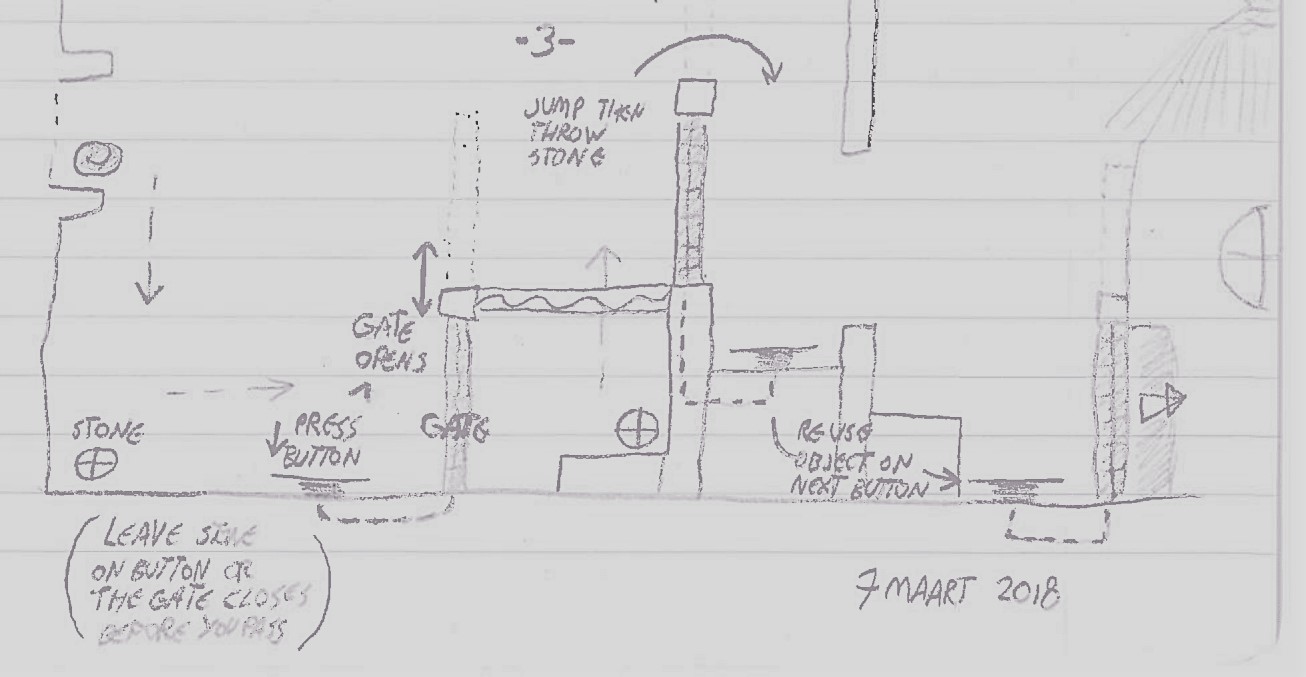 -3-
JUMP THEN
THROW
STONE
GATE
OPENS
STONE
PRESS
BUTTON
GATE
REUSE
OBJECT ON
NEXT BUTTON
(LEAVE
ON BUTTON OR
THE GATE CLOSES
BEFORE YOU PASS)
7 MAART 2018